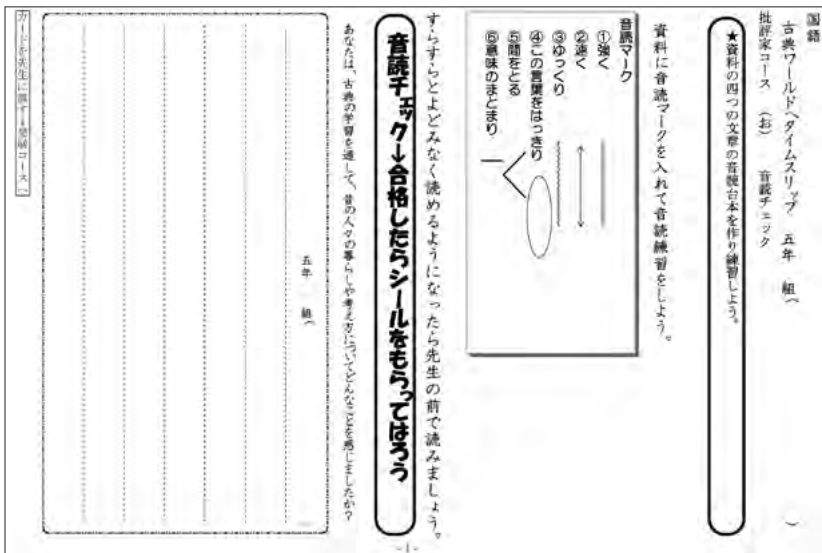 国語
古典ワールドへタイムスリップ 五年 組（ ）
批評家コース （お） 音読チェック
★資料の四つの文章の音読台本を作り練習しよう。
資料に音読マークを入れて音読練習をしよう。
音読マーク
①強く
②速く
③ゆっくり
④この言葉をはっきり
⑤間をとる
⑥意味のまとまり
すらすらとよどみなく読めるようになったら先生の前で読みましょう。
音読チェック→合格したらシールをもらってはろう
あなたは、古典の学習を通して、昔の人々の暮らしや考え方についてどんなことを感じましたか？
五年 組（
カードを先生に渡す→発展コースへ
-1-